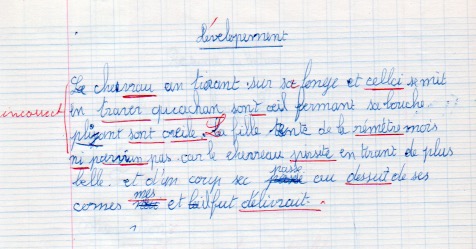 dévelopement
Le chevrau en tirant sur sa longe et cellci se mit
incorrect
en traver qucachan sont œil fermant sa bouche
pliant sont oreile. La fille tente de le rémétre mois
ni parvien pas car le chevreau insite en tirant de plus
belle. et d'un coup sec passe au dessut de ses
cornes mes et il fut délivrait.